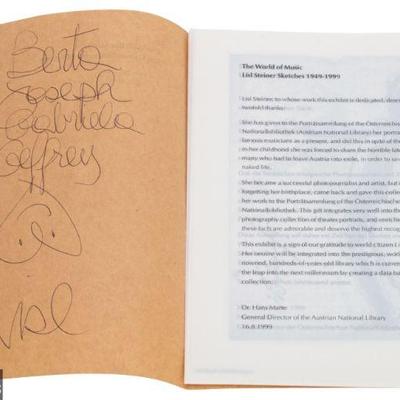 Berta
Joseph
Gabriela
Jeffrey
Lisl
The World of Music
Lisl Steiner Sketches 1949-1999
Lisl Steiner, to whose work this exhibit is dedicated, dese
twofold thanks:
She has given to the Porträtsammlung of the Österreichische
Nationalbibliothek (Austrian National Library) her portrai
famous musicians as a present, and did this in spite of the
in her childhood she was forced to share the horrible fate
many who had to leave Austria into exile, in order to save
naked life.
She became a successful photojournalist and artist, but i
forgetting her birthplace, came back and gave this collec
her work to the Porträtsammlung of the Österreichischen
Nationalbibliothek. This gift integrates very well into the
photography collection of theater portraits, and enriches
these facts are admirable and deserve the highest recogn
This exhibit is a sign of our gratitude to world citizen Li
Her oeuvre will be integrated into the prestigious, world-
nowned, hundreds-of-years-old library which is current
the leap into the next millennium by creating a data ba
collection.
Dr. Hans Marte
General Director of the Austrian National Library
16.8.1999